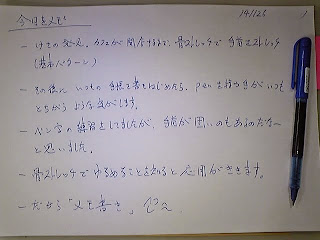 今日のメモ 141126
- けさの気づき、カフェが開店するまで、骨ストレッチで手首ストレッチ
(基本パターン)
- その後に いつもの手帳を書きはじめたら、penを持つ手がいつも
とちがうような気がします。
- ペン字の練習をしてましたが、手首が固いのもあるのだな〜
と思いました。
- 骨ストレッチでゆるめることを知ると応用がききます。
- だから「メモ書き」